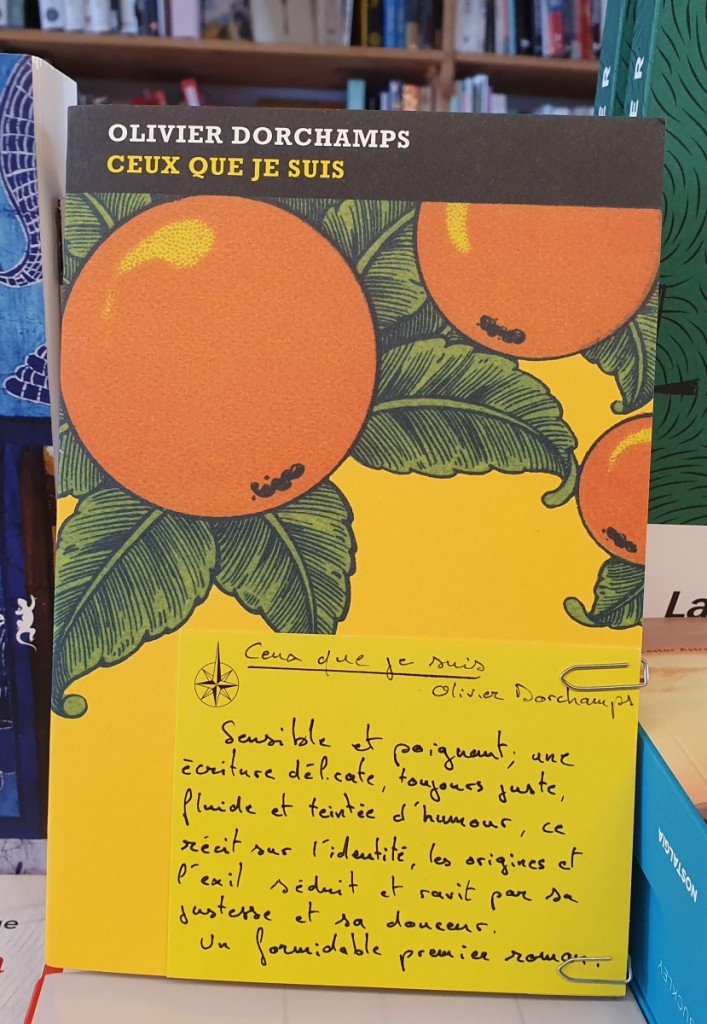 OLIVIER DORCHAMPS
CEUX QUE JE SUIS
Ceux que je suis
Olivier Dorchamps
Sensible et poignant, une
écriture délicate, toujours juste,
fluide et teintée d'humour, ce
récit sur l'identité, les origines et
l'exil séduit et ravit par sa
justesse et sa douceur.
Un formidable premier roman.
La
NOSTALGIA
BUCKLEY
ER
ER